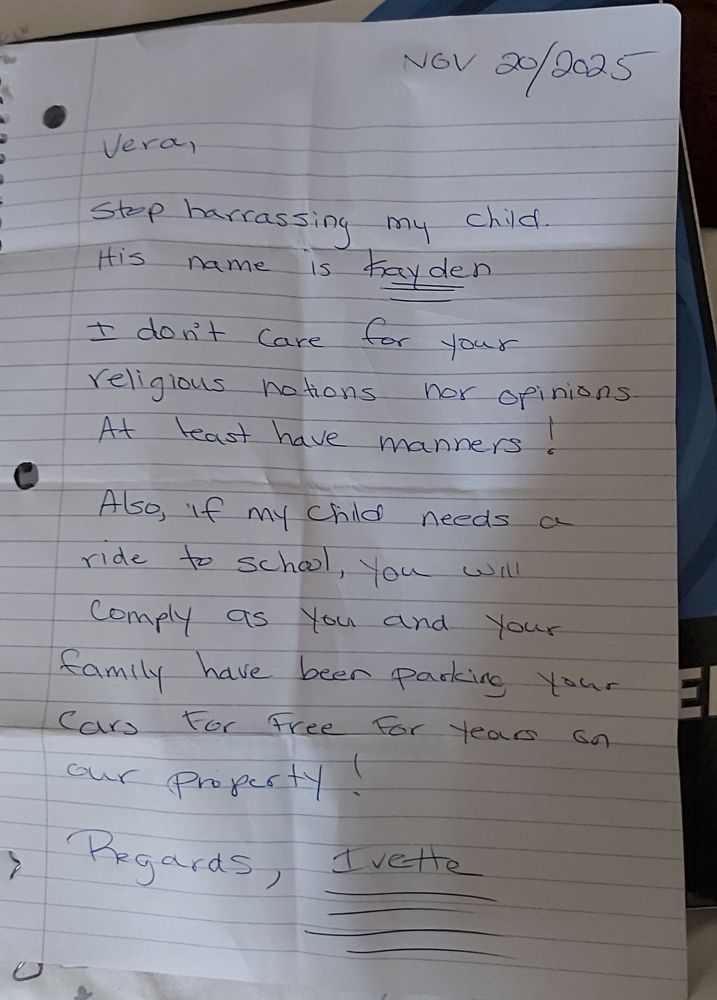 NOV 20/2025
Vera,
Stop harrassing my child.
His name is Kayden
I don't care for your
religious notions nor opinions.
At least have manners!
Also, if my child needs a
ride to school, you will
comply as you and your
family have been parking your
cars for free for years on
our property!
Regards, Ivette